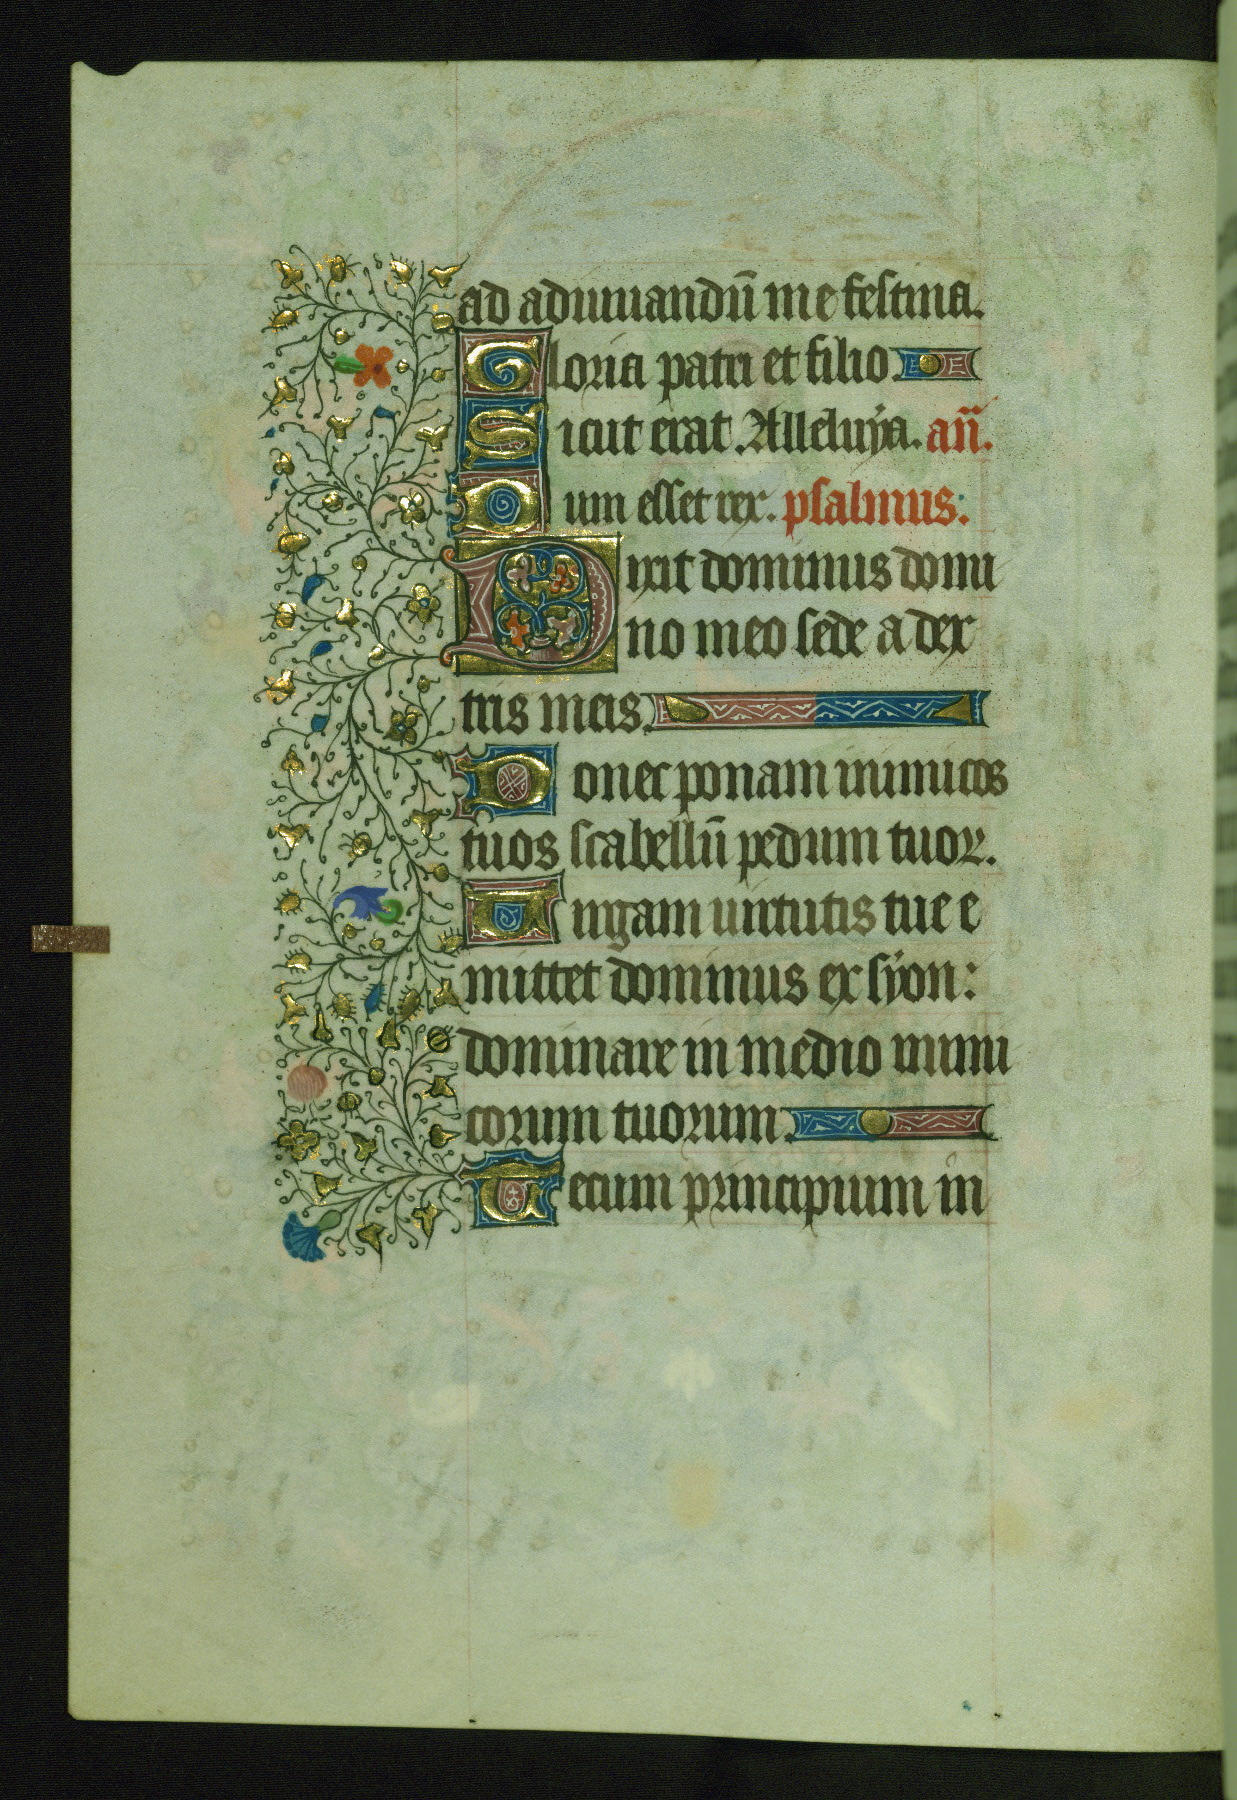 ad adiuuandū me festina.
Gloria patri et filio.
Sicut erat. Alleluya. an̄.
Dum esset rex. psalmus:
Dixit dominus domi
no meo sede a dex
tris meis.
Donec ponam inimicos
tuos scabellū pedum tuoꝝ.
Uirgam uirtutis tue e
mittet dominus ex syon:
dominare in medio inimi
corum tuorum.
Tecum principium in